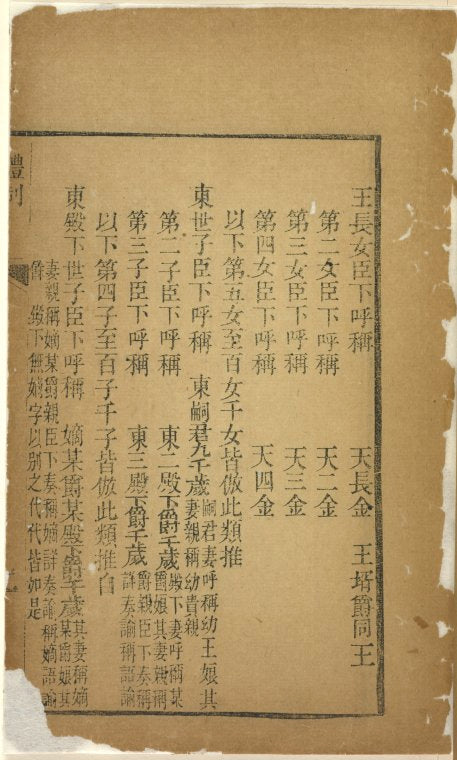 王長女臣下呼稱 天長金 王壻爵同王
第二女臣下呼稱 天二金
第三女臣下呼稱 天三金
第四女臣下呼稱 天四金
以下第五女至百女千女皆倣此類推
東世子臣下呼稱 東嗣君九千歲 嗣君妻呼稱幼王娘其
妻親稱幼貴親
第二子臣下呼稱 東二殿下爵千歲 殿下妻呼稱某
爵娘其妻親稱
第三子臣下呼稱 東三殿下爵千歲 爵親臣下奏稱
詳奏諭稱語諭
以下第四子至百子千子皆倣此類推自
東殿下世子臣下呼稱 嫡某爵某殿下爵千歲 其妻稱嫡
某爵娘其
妻親稱嫡某爵親臣下奏稱嫡詳奏諭稱嫡語諭
殿下無嫡字以別之代代皆如是
禮制